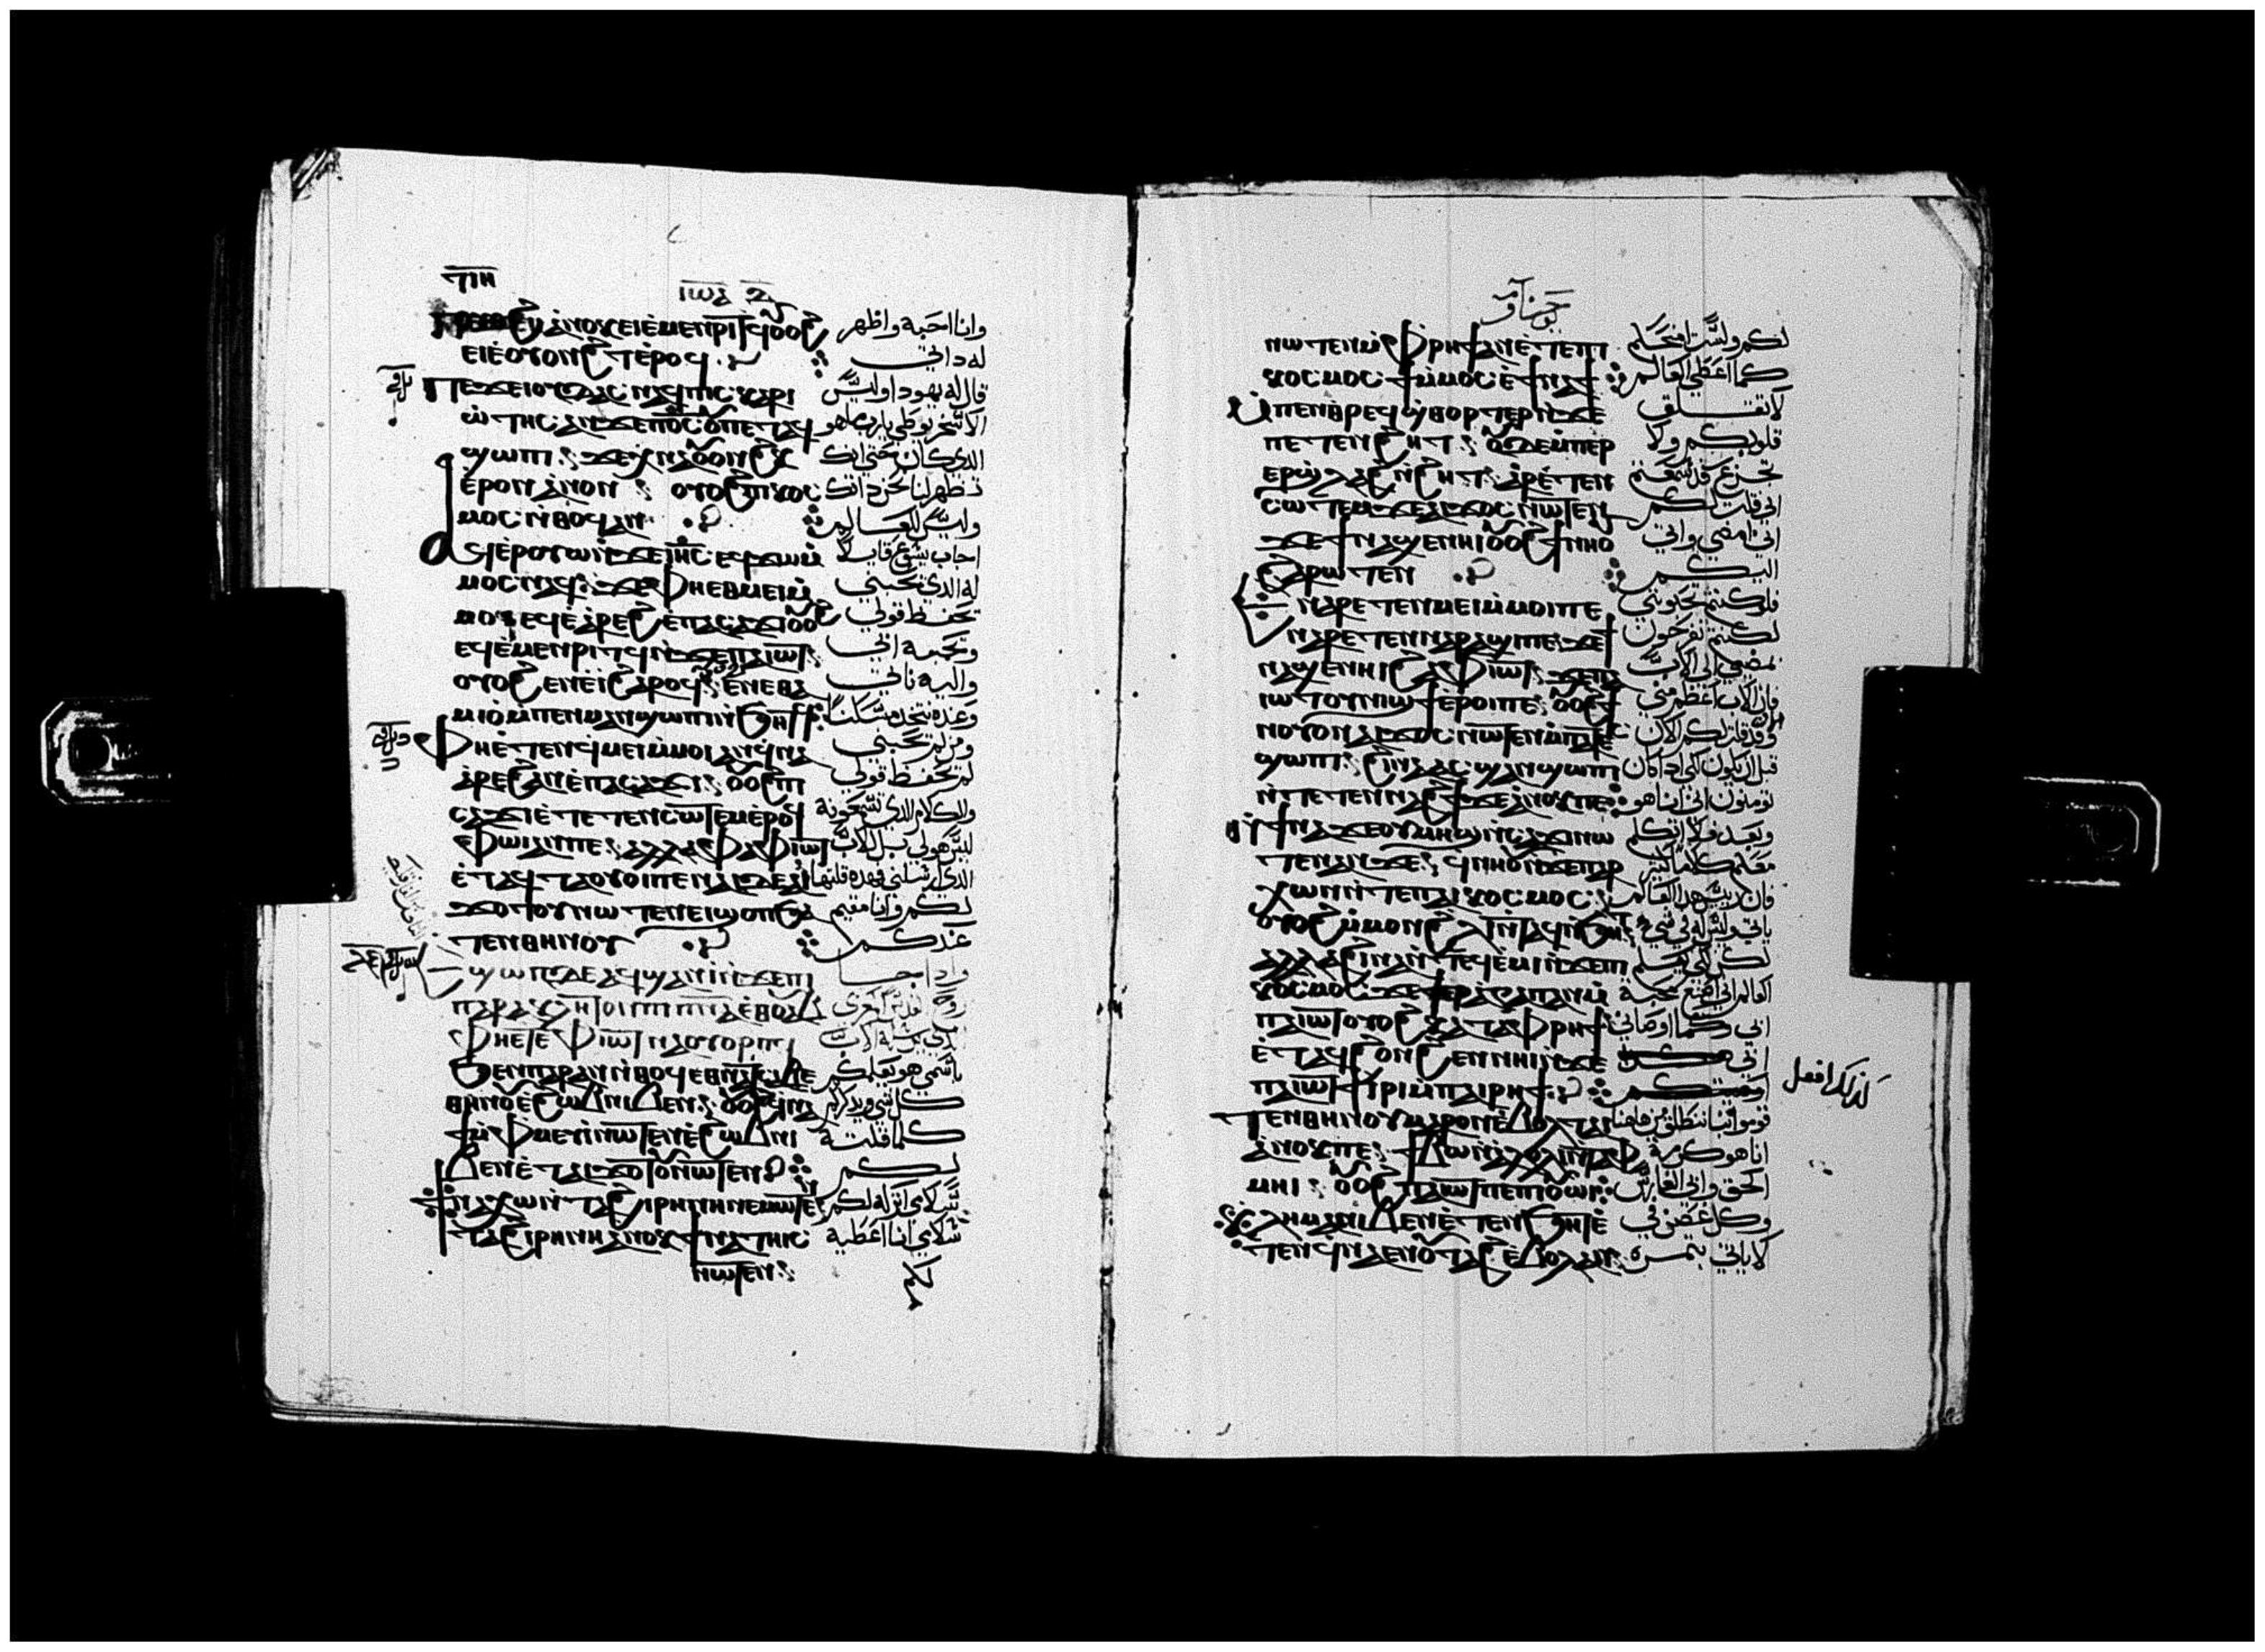 ⲧⲓⲏ
ⲓⲱⲁ
ⲁⲛⲟⲕ ⲉⲓⲉ̀ⲙⲉⲛⲣⲓⲧϥ ⲟⲩⲟϩ
ⲉⲓⲉ̀ⲟⲩⲟⲛϩⲧ ⲉ̀ⲣⲟϥ
ⲡⲉϫⲉ ⲓⲟⲩⲇⲁⲥ ⲛⲁϥ ⲡⲓⲥⲕⲁⲣⲓ
ⲱⲧⲏⲥ ⲁⲛ ϫⲉ ⲡ︦ⲟ︦ⲥ︦ ⲟⲩ ⲡⲉⲧⲁϥ
ϣⲱⲡⲓ ϫⲉ ⲭⲛⲁⲟⲩⲟⲛϩⲕ
ⲉ̀ⲣⲟⲛ ⲁ̀ⲛⲟⲛ ⲟⲩⲟϩ ⲡⲓⲕⲟⲥ
ⲙⲟⲥ ⲛ̀ⲑⲟϥ ⲁⲛ
ⲁϥⲉ̀ⲣⲟⲩⲱ ⲛ̀ϫⲉ ⲓ︦ⲏ︦ⲥ︦ ⲉϥϫⲱ ⲙ̀
ⲙⲟⲥ ⲛⲁϥ ϫⲉ ⲫⲏ ⲉⲑⲙⲉⲓ ⲙ̀
ⲙⲟⲓ ⲉϥⲉ̀ⲁ̀ⲣⲉϩ ⲉ̀ⲡⲁⲥⲁϫⲓ ⲟⲩⲟϩ
ⲉϥⲉ̀ⲙⲉⲛⲣⲓⲧϥ ⲛ̀ϫⲉ ⲡⲁⲓⲱⲧ
ⲟⲩⲟϩ ⲉⲛⲉ̀ⲓ̀ ϩⲁⲣⲟϥ ⲉ̀ⲛⲉⲑⲁ
ⲙⲓⲟ̀ ⲙ̀ⲡⲉⲛⲙⲁⲛϣⲱⲡⲓ ⲛ̀ϧⲏⲧϥ
ⲫⲏ ⲉ̀ⲧⲉⲛϥⲙⲉⲓ ⲙ̀ⲙⲟⲓ ⲁⲛ ϥⲛⲁ
ⲁ̀ⲣⲉϩ ⲁⲛ ⲉ̀ⲡⲁⲥⲁϫⲓ ⲟⲩⲟϩ ⲡⲓ
ⲥⲁϫⲓ ⲉ̀ⲧⲉⲧⲉⲛⲥⲱⲧⲉⲙ ⲉ̀ⲣⲟϥ
ⲫⲱⲓ ⲁⲛ ⲡⲉ ⲁⲗⲗⲁ ⲫⲁ ⲫⲓⲱⲧ
ⲉ̀ⲧⲁϥⲧⲁⲟⲩⲟⲓ ⲡⲉ ⲛⲁⲓ ⲇⲉ ⲁⲓ
ϫⲟⲧⲟⲩ ⲛⲱⲧⲉⲛ ⲉⲓϣⲟⲡ ϧⲁ
ⲧⲉⲛⲑⲏⲛⲟⲩ
ⲉϣⲱⲡ ⲇⲉ ⲁϥϣⲁⲛⲓ̀ ⲛ̀ϫⲉ ⲡⲓ
ⲡⲁⲣⲁⲕⲗⲏⲧⲟⲛ ⲡⲓⲡ︦ⲛ︦ⲁ︦ ⲉ̀ⲑⲟⲩⲁⲃ
ⲫⲏ ⲉⲧⲉ ⲫⲓⲱⲧ ⲛⲁⲟⲩⲟⲣⲡϥ
ϧⲉⲛ ⲡⲁⲣⲁⲛ ⲛ̀ⲑⲟϥ ⲉⲑⲛⲁⲧⲥⲁⲃⲉ
ⲑⲏⲛⲟⲩ ⲉ̀ϩⲱⲃ ⲛⲓⲃⲉⲛ ⲟⲩⲟϩ ϥⲛⲁ
ϯⲙ̀ⲫⲙⲉⲩⲓ̀ ⲛⲱⲧⲉⲛ ⲉ̀ϩⲱⲃ ⲛⲓ
ⲃⲉⲛ ⲉ̀ⲧⲁⲓϫⲟⲧⲟⲩ ⲛⲱⲧⲉⲛ
ϯⲛⲁⲭⲱ ⲛ̀ⲧⲁϩⲓⲣⲏⲛⲏ ⲛⲉⲙⲱⲧⲉⲛ
ⲧⲁϩⲓⲣⲏⲛⲏ ⲁ̀ⲛⲟⲕ ϯⲛⲁⲧⲏⲓⲥ
ⲛⲱⲧⲉⲛ
وانا احبه واظهر
له داتي
قال له يهودا وليس
الاسخريوطي يارب ما هو
الدي كان حتي انك
تظهر لنا نحن داتك
وليس للعالم
اجاب يسوع قايلا
له الدي يحبني
يحفظ قولي
ويحبه ابي
واليه ناتي
وعنده نتخد مسكنا
ومن لم يحبني
لم يحفظ قولي
والكلام الدي تسمعونه
ليس هو لي بل للاب
الدي ارسلني فهده قلتها
لكم وانا مقيم
عندكم
وادا جا
روح القدس المعزي
الدي يرسله الاب
باسمي هو يعلمكم
كل شي ويدكركم
كلما قلته
لكم
سلامي اتركه لكم
سلامي انا اعطيه
لكم
يوحنا
ⲛⲱⲧⲉⲛ ⲙ̀ⲫⲣⲏϯ ⲁⲛ ⲉ̀ⲧⲉ ⲡⲓ
ⲕⲟⲥⲙⲟⲥ ϯ ⲙ̀ⲙⲟⲥ ⲉ̀ϯⲛⲁϯ
ⲙ̀ⲡⲉⲛⲑⲣⲉϥϣⲑⲟⲣⲧⲉⲣ ⲛ̀ϫⲉ
ⲡⲉⲧⲉⲛϩⲏⲧ ⲟⲩⲇⲉ ⲙ̀ⲡⲉⲣ
ⲉⲣϣ̀ⲗⲁϩ ⲛ̀ϩⲏⲧ ⲁ̀ⲣⲉⲧⲉⲛ
ⲥⲱⲧⲉⲙ ϫⲉ ⲁⲓϫⲟⲥ ⲛⲱⲧⲉⲛ
ϫⲉ ϯⲛⲁϣⲉⲛⲏⲓ ⲟⲩⲟϩ ϯⲛⲏⲟⲩ
ϩⲁⲣⲱⲧⲉⲛ
ⲉⲛⲁⲣⲉⲧⲉⲛⲙⲉⲓ ⲙ̀ⲙⲟⲓ ⲡⲉ
ⲛⲁⲣⲉⲧⲉⲛⲛⲁⲣⲁϣⲓ ⲡⲉ ϫⲉ ϯ
ⲛⲁϣⲉⲛⲏⲓ ϩⲁ ⲫⲓⲱⲧ ϫⲉ ⲡⲁ
ⲓⲱⲧ ⲟⲩⲛⲓϣϯ ⲉ̀ⲣⲟⲓ ⲡⲉ ⲟⲩⲟϩ ϯ
ⲛⲟⲩ ⲟⲛ ⲁⲓϫⲟⲥ ⲛⲱⲧⲉⲛ ⲙ̀ⲡⲁⲧⲉ
ϣⲱⲡⲓ ϩⲓⲛⲁ ⲁⲥϣⲁⲛϣⲱⲡⲓ
ⲛ̀ⲧⲉⲧⲉⲛⲛⲁϩϯ ϫⲉ ⲁ̀ⲛⲟⲕ ⲡⲉ
ϯⲛⲁϫⲉ ⲟⲩⲙⲏϣ ⲛ̀ⲥⲁϫⲓ ⲛⲱ
ⲧⲉⲛ ⲁⲛ ϫⲉ ϥⲛⲏⲟⲩ ⲛ̀ϫⲉ ⲡⲁⲣ
ⲭⲱⲛ ⲛ̀ⲧⲉ ⲡⲁⲓⲕⲟⲥⲙⲟⲥ
ⲟⲩⲟϩ ⲙ̀ⲙⲟⲛ ϩⲗⲓ ⲛ̀ⲧⲁϥ ⲛ̀ϧⲏⲧ
ⲁⲗⲗⲁ ϩⲓⲛⲁ ⲛ̀ⲧⲉϥⲉ̀ⲙⲓ ⲛ̀ϫⲉ ⲡⲓ
ⲕⲟⲥⲙⲟⲥ ϫⲉ ϯⲉⲣⲁ̀ⲅⲁⲡⲁⲛ ⲙ̀
ⲡⲁⲓⲱⲧ ⲟⲩⲟϩ ⲕⲁⲧⲁ ⲫⲣⲏϯ
ⲉ̀ⲧⲁϥϩⲟⲛϩⲉⲛ ⲛⲏⲓ ⲛ̀ϫⲉ
ⲡⲁⲓⲱⲧ ϯⲓ̀ⲣⲓ ⲙ̀ⲡⲁⲓⲣⲏϯ
ⲧⲉⲛⲑⲏⲛⲟⲩ ⲙⲁⲣⲟⲛ ⲉ̀ⲃⲟⲗ ⲧⲁⲓ
ⲁ̀ⲛⲟⲕ ⲡⲉ ϯⲃⲱ ⲛ̀ⲁ̀ⲗⲟⲗⲓ ⲛ̀ⲧⲁⲫ
ⲙⲏⲓ ⲟⲩⲟϩ ⲡⲁⲓⲱⲧ ⲡⲉ ⲡⲓⲟⲩⲱⲓ
ⲕⲗⲏⲙⲁ ⲛⲓⲃⲉⲛ ⲉ̀ⲧⲉⲛϧⲏⲧ ⲉ̀
ⲧⲉⲛϥⲛⲁⲉⲛ ⲟⲩⲧⲁϩ ⲉ̀ⲃⲟⲗ ⲁⲛ
لكم ولست امنحكم
كما اعطي العالم
لا تقلق
قلوبكم ولا
تجزع قد سمعتم
اني قلت لكم
اني امضي واتي
اليكم
فلو كنتم تحبوني
لكنتم تفرحون
بمضيي الي الاب
فان الاب اعظم مني
وقد قلت لكم الان
قبل ان يكون لكي ادا كان
تومنون اني انا هو
وبعد فلا اتكلم
معكم كلاما كثير
فان رييس هدا العالم
ياتي وليس له في شي
لكن لكي يعلم
العالم اني اصنع محبة
ابي وكما اوصاني
ابي
كذلك افعل
قوموا بنا ننطلق من هاهنا
انا هو كرمة
الحق وابي الغارس
وكل غصن في
لا ياتي بثمرة